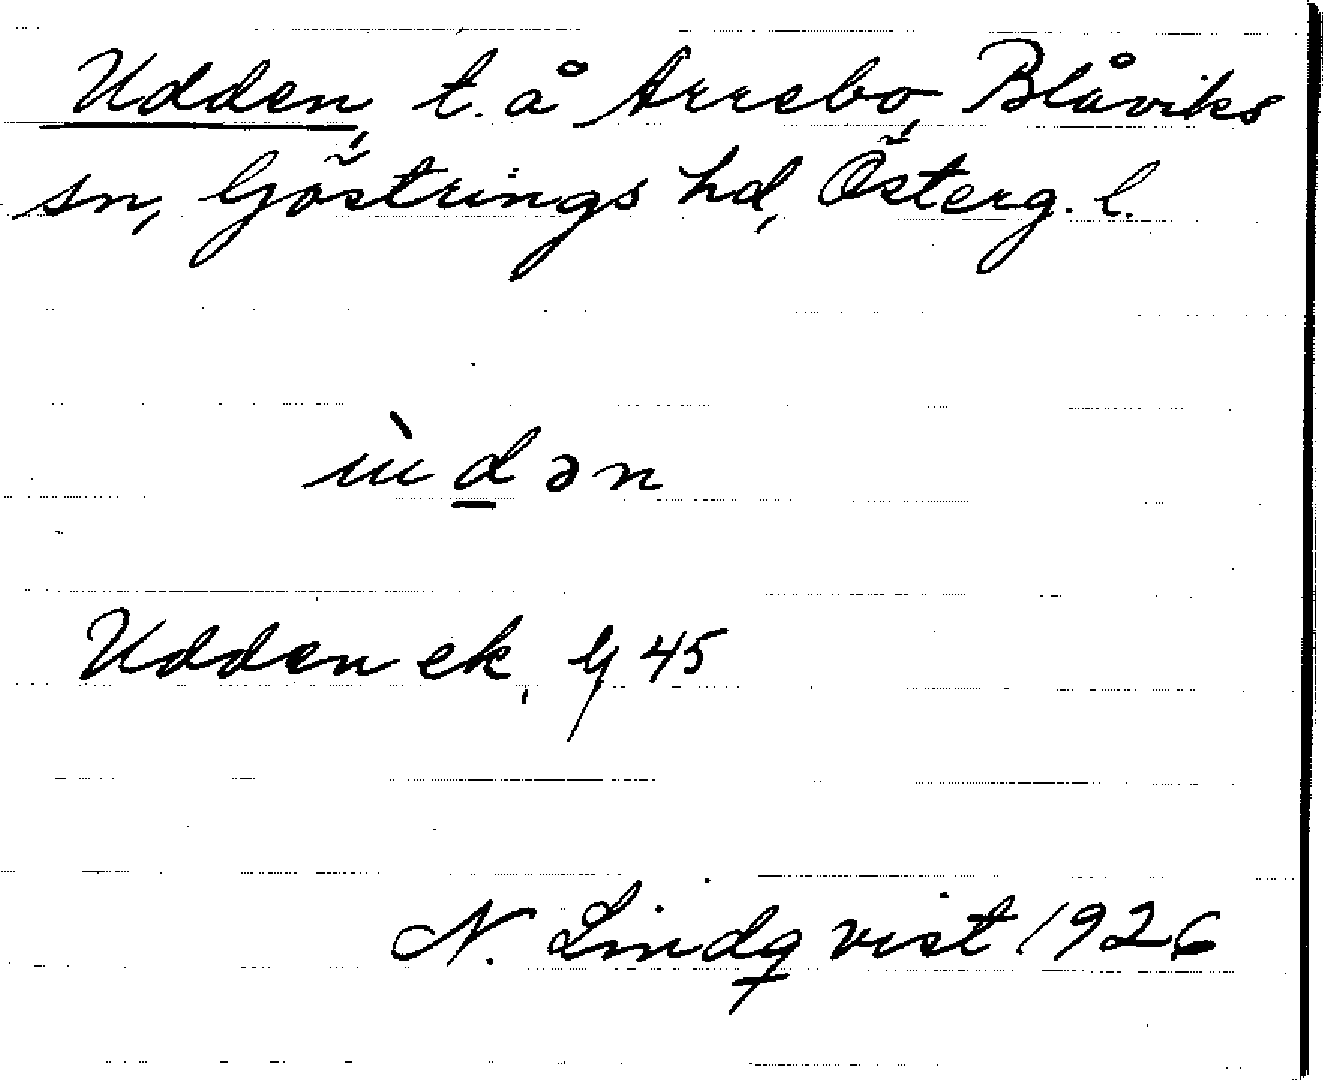 Udden, t. å Arrebo, Blåviks
sn, Göstrings hd, Österg. l.
ùdən
Udden ek, G 45
N. Lindqvist 1926